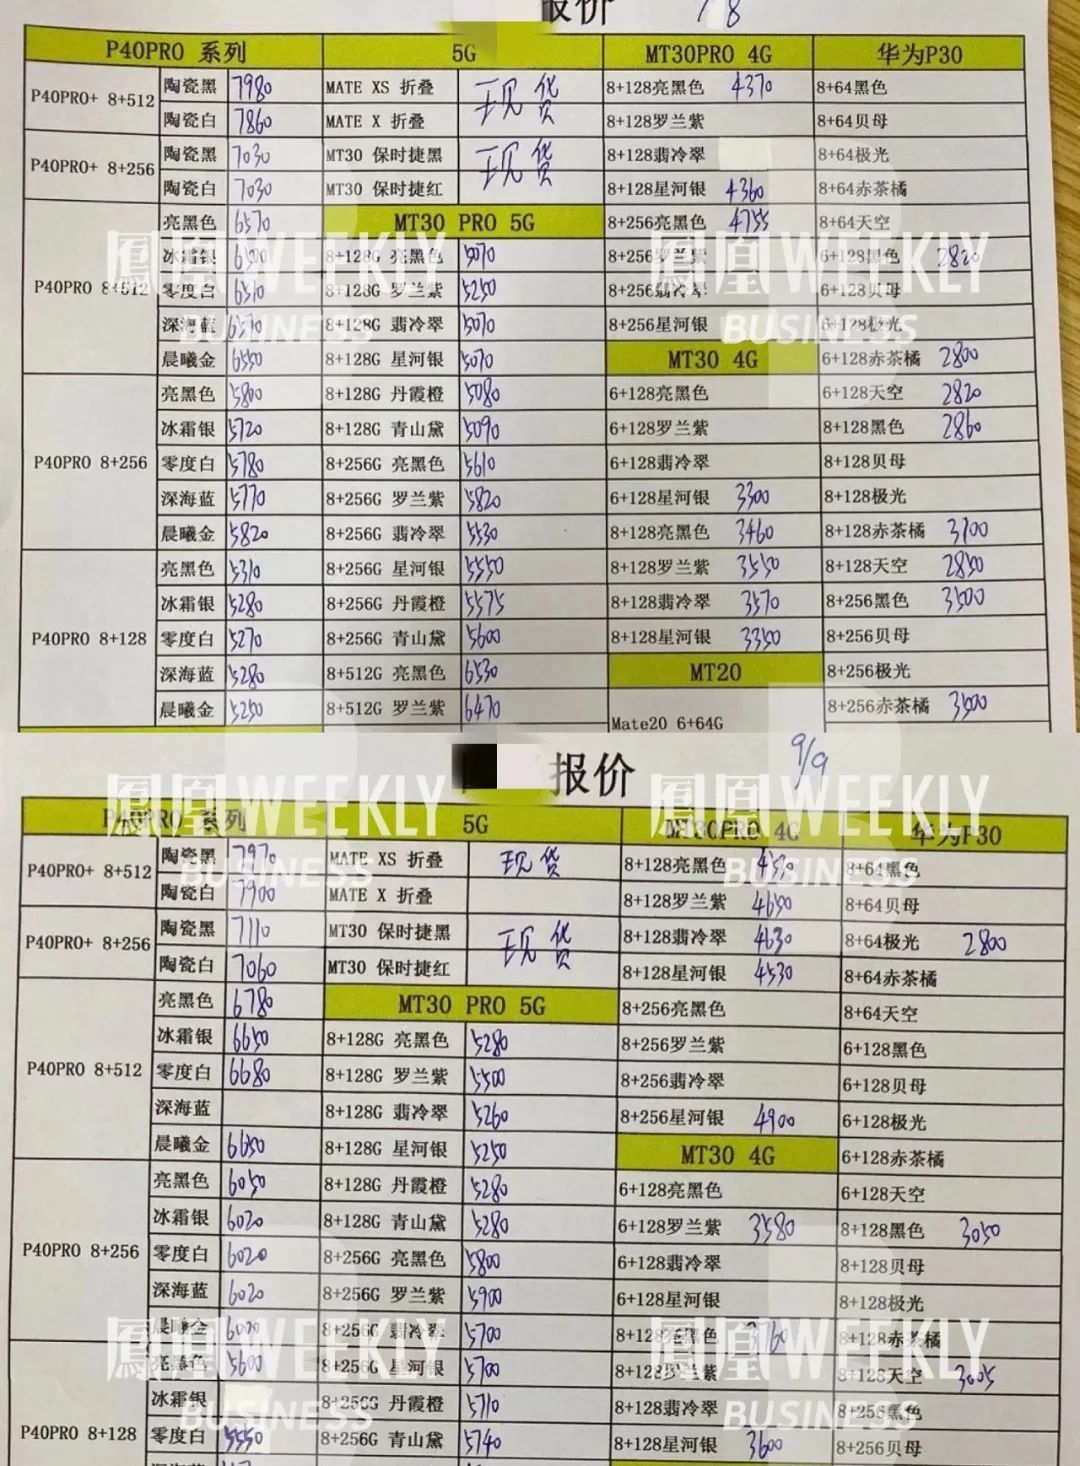 报价 7/8
P40PRO 系列 5G MT30PRO 4G 华为P30
P40PRO+ 8+512 陶瓷黑 7980 MATE XS 折叠 现货 8+128亮黑色 4370 8+64黑色
陶瓷白 7860 MATE X 折叠 8+128罗兰紫 8+64贝母
P40PRO+ 8+256 陶瓷黑 7030 MT30 保时捷黑 现货 8+128翡冷翠 8+64极光
陶瓷白 7030 MT30 保时捷红 8+128星河银 4360 8+64赤茶橘
P40PRO 8+512 亮黑色 6570 MT30 PRO 5G 8+256亮黑色 4755 8+64天空
冰霜银 6500 8+128G 亮黑色 5070 8+256罗兰紫 6+128黑色 2820
零度白 6510 8+128G 罗兰紫 5250 8+256翡冷翠 6+128贝母
深海蓝 6570 8+128G 翡冷翠 5070 8+256星河银 6+128极光
晨曦金 6550 8+128G 星河银 5070 MT30 4G 6+128赤茶橘 2800
P40PRO 8+256 亮黑色 5800 8+128G 丹霞橙 5080 6+128亮黑色 6+128天空 2820
冰霜银 5720 8+128G 青山黛 5090 6+128罗兰紫 8+128黑色 2860
零度白 5780 8+256G 亮黑色 5610 6+128翡冷翠 8+128贝母
深海蓝 5770 8+256G 罗兰紫 5820 6+128星河银 3300 8+128极光
晨曦金 5820 8+256G 翡冷翠 5530 8+128亮黑色 3460 8+128赤茶橘 3100
P40PRO 8+128 亮黑色 5310 8+256G 星河银 5550 8+128罗兰紫 3550 8+128天空 2850
冰霜银 5280 8+256G 丹霞橙 5575 8+128翡冷翠 3570 8+256黑色 3500
零度白 5270 8+256G 青山黛 5600 8+128星河银 3350 8+256贝母
深海蓝 5280 8+512G 亮黑色 6530 MT20 8+256极光
晨曦金 5250 8+512G 罗兰紫 6470 Mate20 6+64G 8+256赤茶橘 3500
报价 9/9
P40PRO 系列 5G MT30PRO 4G 华为P30
P40PRO+ 8+512 陶瓷黑 7970 MATE XS 折叠 现货 8+128亮黑色 8+64黑色
陶瓷白 7900 MATE X 折叠 8+128罗兰紫 4650 8+64贝母
P40PRO+ 8+256 陶瓷黑 7110 MT30 保时捷黑 现货 8+128翡冷翠 4630 8+64极光 2800
陶瓷白 7060 MT30 保时捷红 8+128星河银 4530 8+64赤茶橘
P40PRO 8+512 亮黑色 6780 MT30 PRO 5G 8+256亮黑色 8+64天空
冰霜银 6650 8+128G 亮黑色 5280 8+256罗兰紫 6+128黑色
零度白 6680 8+128G 罗兰紫 5500 8+256翡冷翠 6+128贝母
深海蓝 8+128G 翡冷翠 5260 8+256星河银 4900 6+128极光
晨曦金 6650 8+128G 星河银 5250 MT30 4G 6+128赤茶橘
P40PRO 8+256 亮黑色 6050 8+128G 丹霞橙 5280 6+128亮黑色 6+128天空
冰霜银 6020 8+128G 青山黛 5280 6+128罗兰紫 3580 8+128黑色 3050
零度白 6020 8+256G 亮黑色 5800 6+128翡冷翠 8+128贝母
深海蓝 6020 8+256G 罗兰紫 5900 6+128星河银 8+128极光
晨曦金 6000 8+256G 翡冷翠 5700 8+128亮黑色 3760 8+128赤茶橘
P40PRO 8+128 亮黑色 5600 8+256G 星河银 5700 8+128罗兰紫 8+128天空 3005
冰霜银 8+256G 丹霞橙 5710 8+128翡冷翠 8+256黑色
零度白 5550 8+256G 青山黛 5740 8+128星河银 3600 8+256贝母
凤凰WEEKLY
BUSINESS
凤凰WEEKLY
BUSINESS
凤凰WEEKLY
BUSINESS
凤凰WEEKLY
BUSINESS
凤凰WEEKLY
BUSINESS
凤凰WEEKLY
BUSINESS